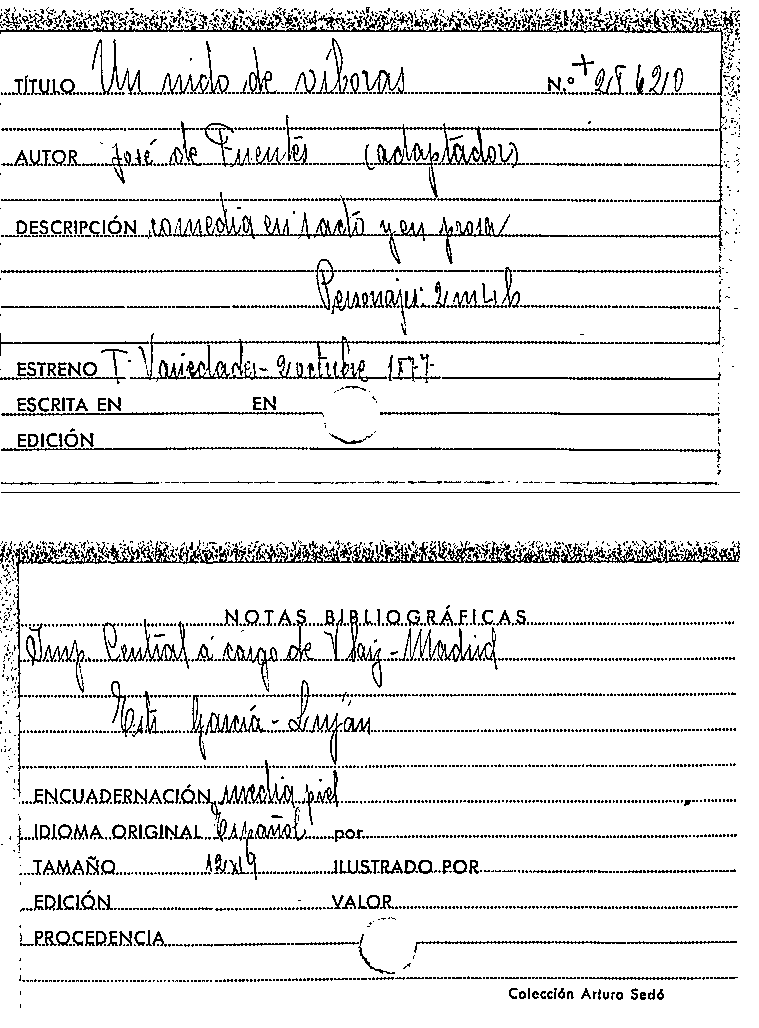 TÍTULO Un nido de víboras N.º +
AUTOR José de Fuentes (adaptador)
DESCRIPCIÓN comedia en 1 acto y en prosa
Personajes: 2 m 4 h
ESTRENO T. Variedades - 2 octubre 1877
ESCRITA EN EN
EDICIÓN
NOTAS BIBLIOGRÁFICAS
Imp. Central á cargo de V Saiz - Madrid
García - Luján
ENCUADERNACIÓN media piel
IDIOMA ORIGINAL Español por
TAMAÑO 12x19 ILUSTRADO POR
EDICIÓN VALOR
PROCEDENCIA
Colección Arturo Sedó